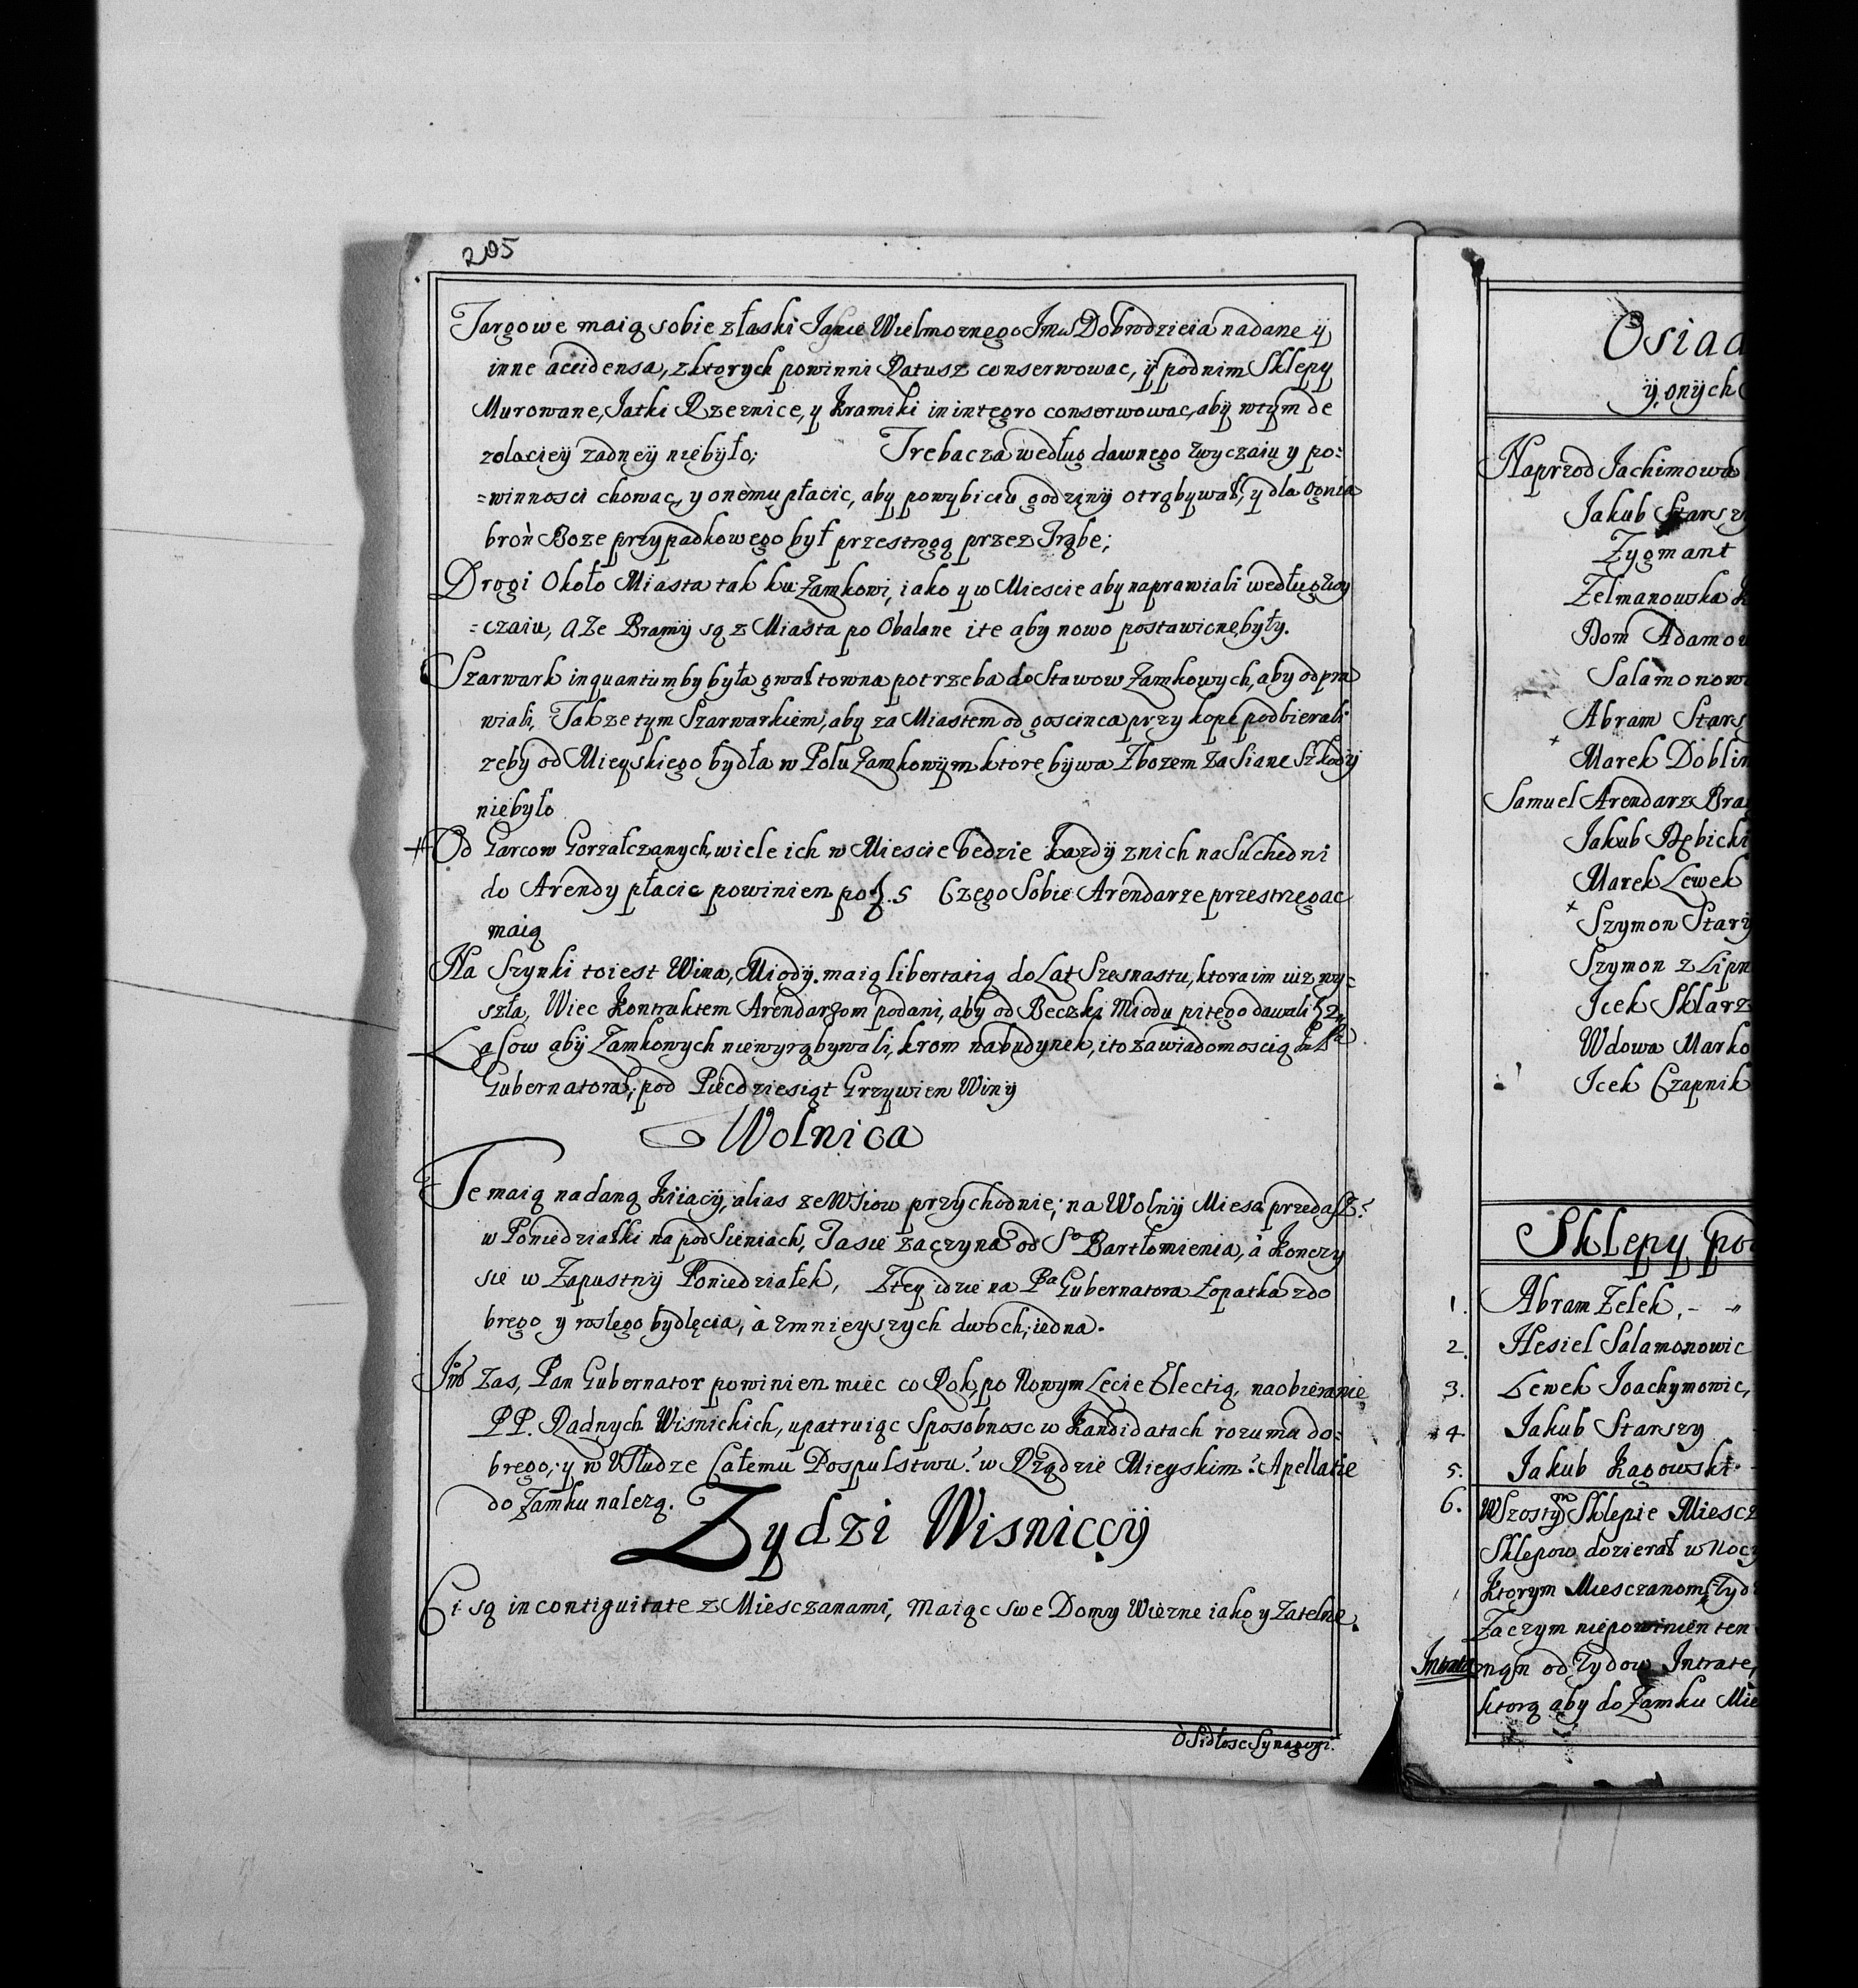 205
Targowe maią sobie złaski Jasnie Wielmoznego Jmci Dobrodzieia nadane ÿ
inne accidensa, zktorych powinni Ratusz conserwowac, ÿ podnim Sklepy
Murowane, Jatki Rzeznice, y Kramiki in integro conserwowac, abÿ wtym de
zolacieÿ zadneÿ niebÿło; Trebacza według dawnego zwyczaiu y po:
=winnosci chowac, y onemu płacic, aby powybiciu godzinÿ otrąbywał, y dla ognia
broń Boze przypadkowego był przestrogą przez Trąbe;
Drogi Około Miasta tak ku Zamkowi, iako y w Miescie aby naprawiali według zwy
=czaiu, a ze Bramÿ są z Miasta po Obalane ite aby nowo postawione były.
Szarwark inquantumby była gwałtowna potrzeba do Stawow Zamkowych, aby odpra
wiali, Takze tym Szarwarkiem, aby za Miastem od goscinca przykope podbierali
zeby od Mieyskiego bydła w Polu Zamkowÿm ktore bÿwa Zbozem zasiane Szkodÿ
niebyło
Od Garcow Gorzałczanych, wiele ich w Miescie bedzie kazdÿ znich na Suchedni
do Arendy płacic powinien po f. 5 Czego Sobie Arendarze przestrzegac
maią
Na Szynki toiest Wina, Miodÿ. maią libertatią do Lat Szesnastu, ktora im iuz wy=
szła, Wiec Kontraktem Arendarzom podani, aby od Beczki Miodu pitego dawali
Lasow abÿ Zamkowych niewyrąbywali, krom nabudynek, ito zawiadomoscią
Gubernatora, pod Piecdziesiąt Grzywien Winÿ
Wolnica
Te maią nadaną Kiiacÿ, alias ze Wsiow przychodnie; na Wolnÿ Miesa przedasz:
w Poniedziałki na podSieniach, Ta sie zaczyna od So Bartłomienia, à Konczy
sie w Zapustnÿ Poniedziałek, Ztey idzie na Pa Gubernatora Łopatka zdo
brego y rosłego bydlęcia, à zmnieyszych dwoch; iedna.
Jmć zas, Pan Gubernator powinien miec co Rok, po Nowym Lecie Electią, na obieranie
PP. Radnych Wisnickich, upatruiąc Sposobnosc w Kandidatach rozumu do:
brego; y w Usłudze Całemu Pospulstwu: w Rządzie Mieyskim: Apellatie
do Zamku nalezą.
Zydzi Wisniccÿ
Ci są in contiguitate z Miesczanami, maiąc swe Domy Wiezne iako y Zatelne.
OSidłosc Synagogi.
Osiad
ÿ onÿch
Naprzod Jachimowa
Jakub Starszy
Zygmant
Zelmanowska
Dom Adamow
Salamonow
Abram Stars
+ Marek Doblin
Samuel Arendarz Bra
Jakub Dębicki
Marek Lewek
+ Szymon Starÿ
Szymon z Lipn
Jcek Sklarz
Wdowa Marko
Jcek Czapnik
Sklepy pod
1. Abram Zelek, - „
2. Hesiel Salamonowic
3. Lewek Joachymowic,
4. Jakub Starszy
5. Jakub Kagowski.
6. WSzostym Sklepie Miescz
Sklepow dozierał w Nocy
Ktorym Miesczanom, Zyd
Zaczym niepowinien ten
Intrata nąn od Zydow Intrate,
ktorą aby do Zamku Mie